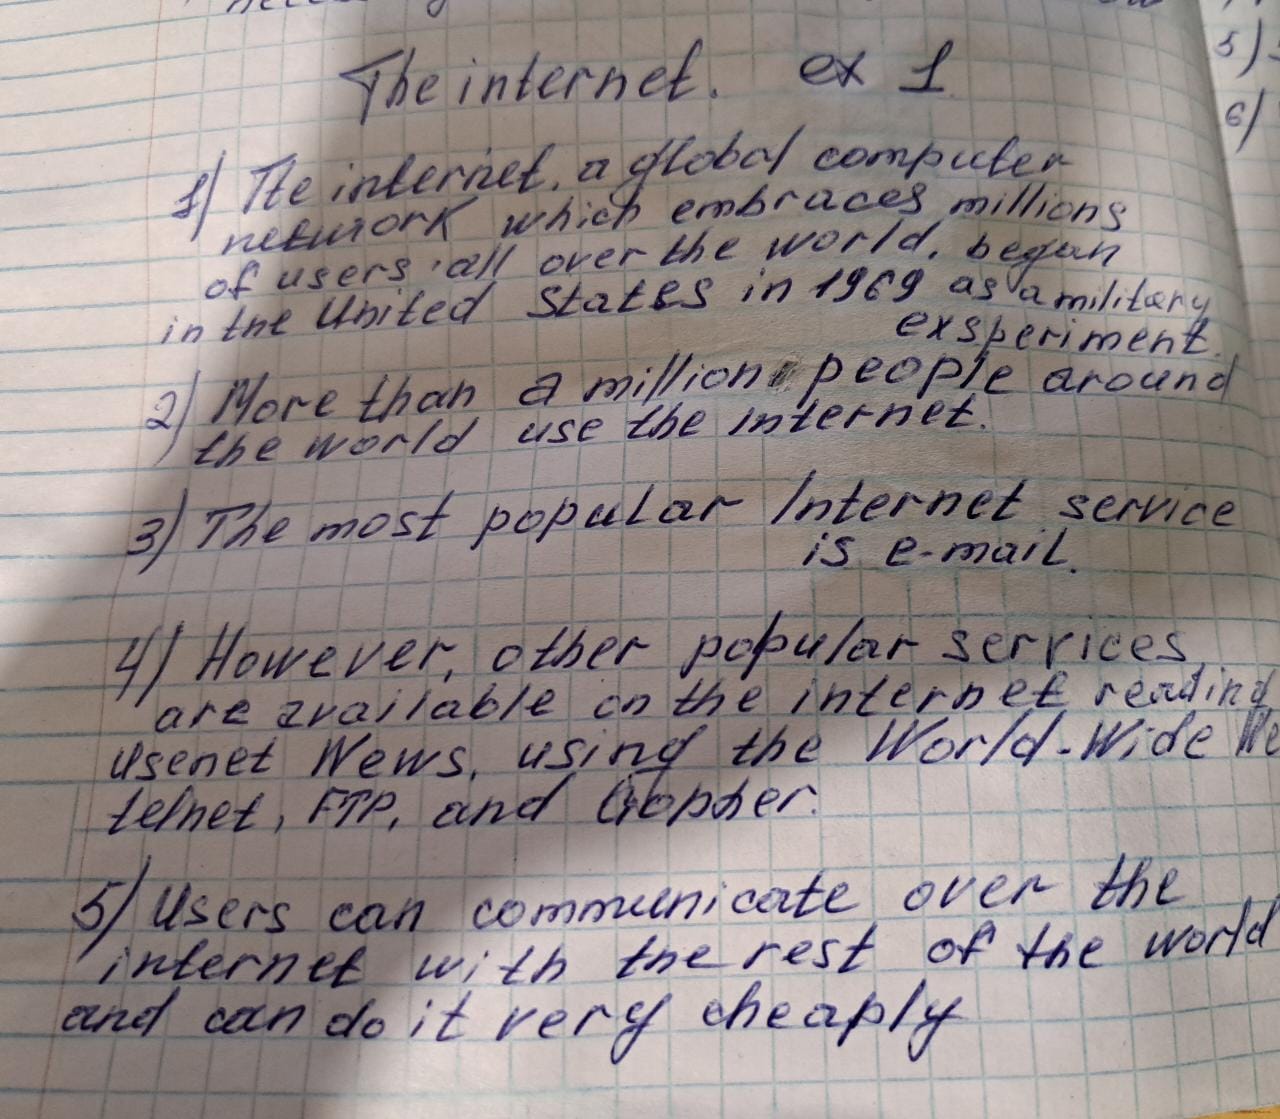 The internet. ex 1
1) The internet, a global computer
network which embraces millions
of users all over the world, began
in the United States in 1969 as a military
exsperiment.
2) More than a million people around
the world use the internet.
3) The most popular Internet service
is e-mail.
4) However, other popular services
are available on the internet reading
Usenet News, using the World-Wide We
telnet, FTP, and Gopher.
5) Users can communicate over the
internet with the rest of the world
and can do it very cheaply
5)
6)